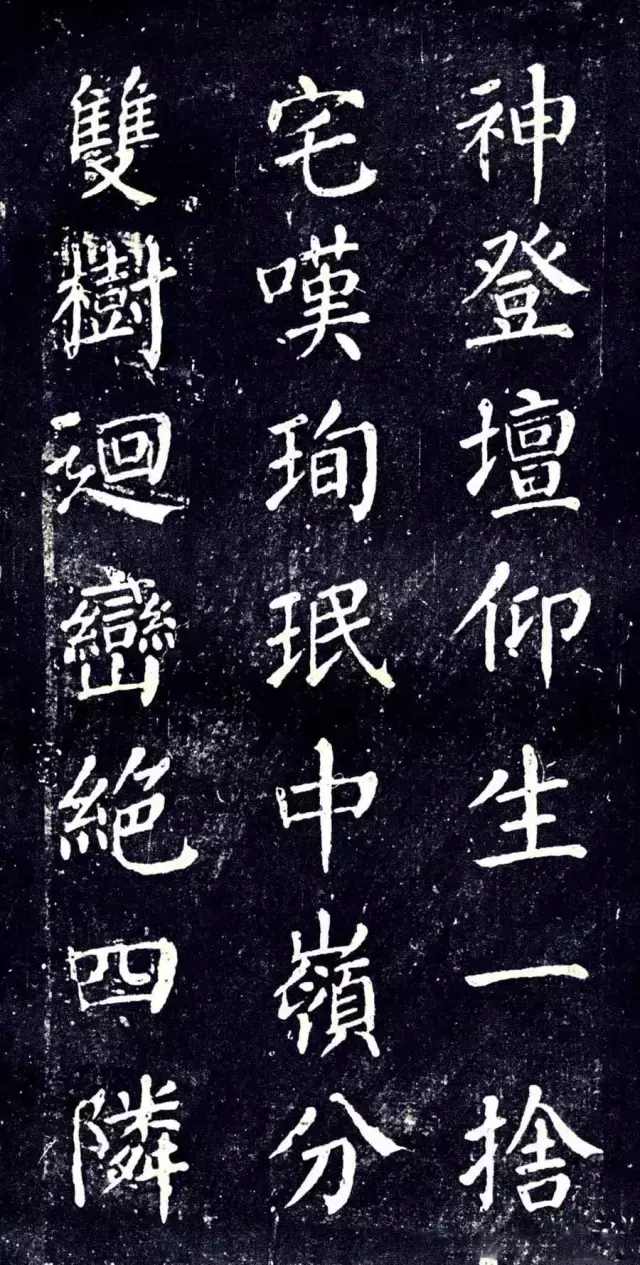 神登壇仰生一捨
宅嘆珣珉中嶺分
雙樹迴巒絕四隣